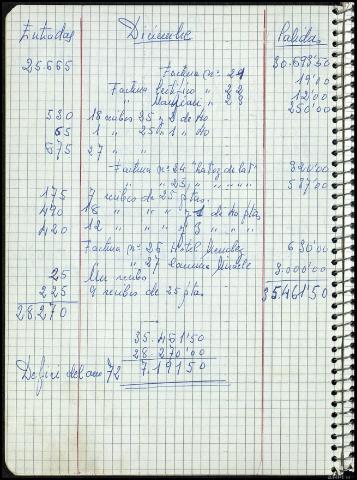 Entradas Diciembre Salidas
25.665 30.698'50
Factura nº 21 19'00
Factura 22 12'00
" " 23 250'00
530 18 recibos 25 y 2 de 40
65 1 " 25 y 1 " 40
675 27 " "
Factura nº 24 "La Voz de la"
" " 25 " " " " 587'00
175 7 recibos de 25 ptas.
490 18 " " " y 1 de 40 ptas
420 12 " " " y 3 " " "
Factura nº 26 Hotel Mendez 630'00
" 27 3.000'00
25 Un recibo
225 9 recibos de 25 pta. 35.461'50
28.270
35.461'50
28.270'00
Defici del año 72 7.191'50